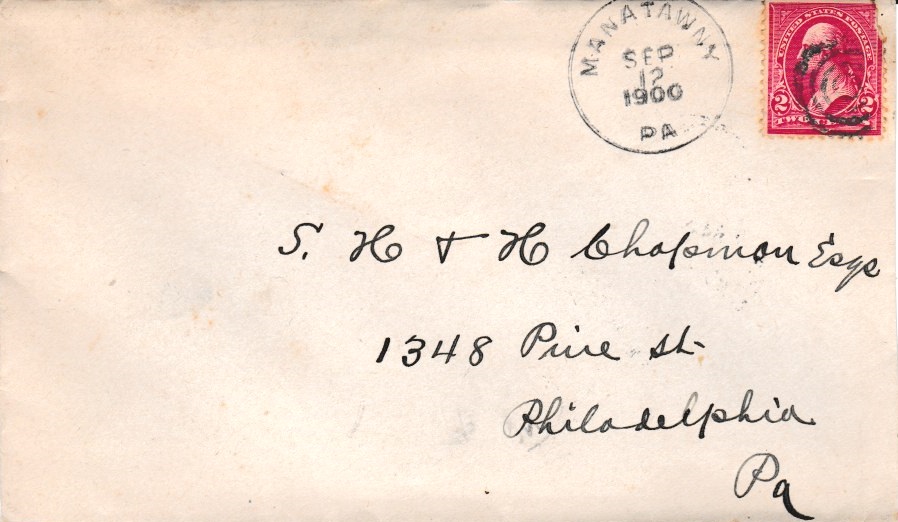 MANATAWNY
SEP
12
1900
PA
UNITED STATES POSTAGE
2 2
TWO
S. H & H Chapman Esqs
1348 Pine st
Philadelphia
Pa